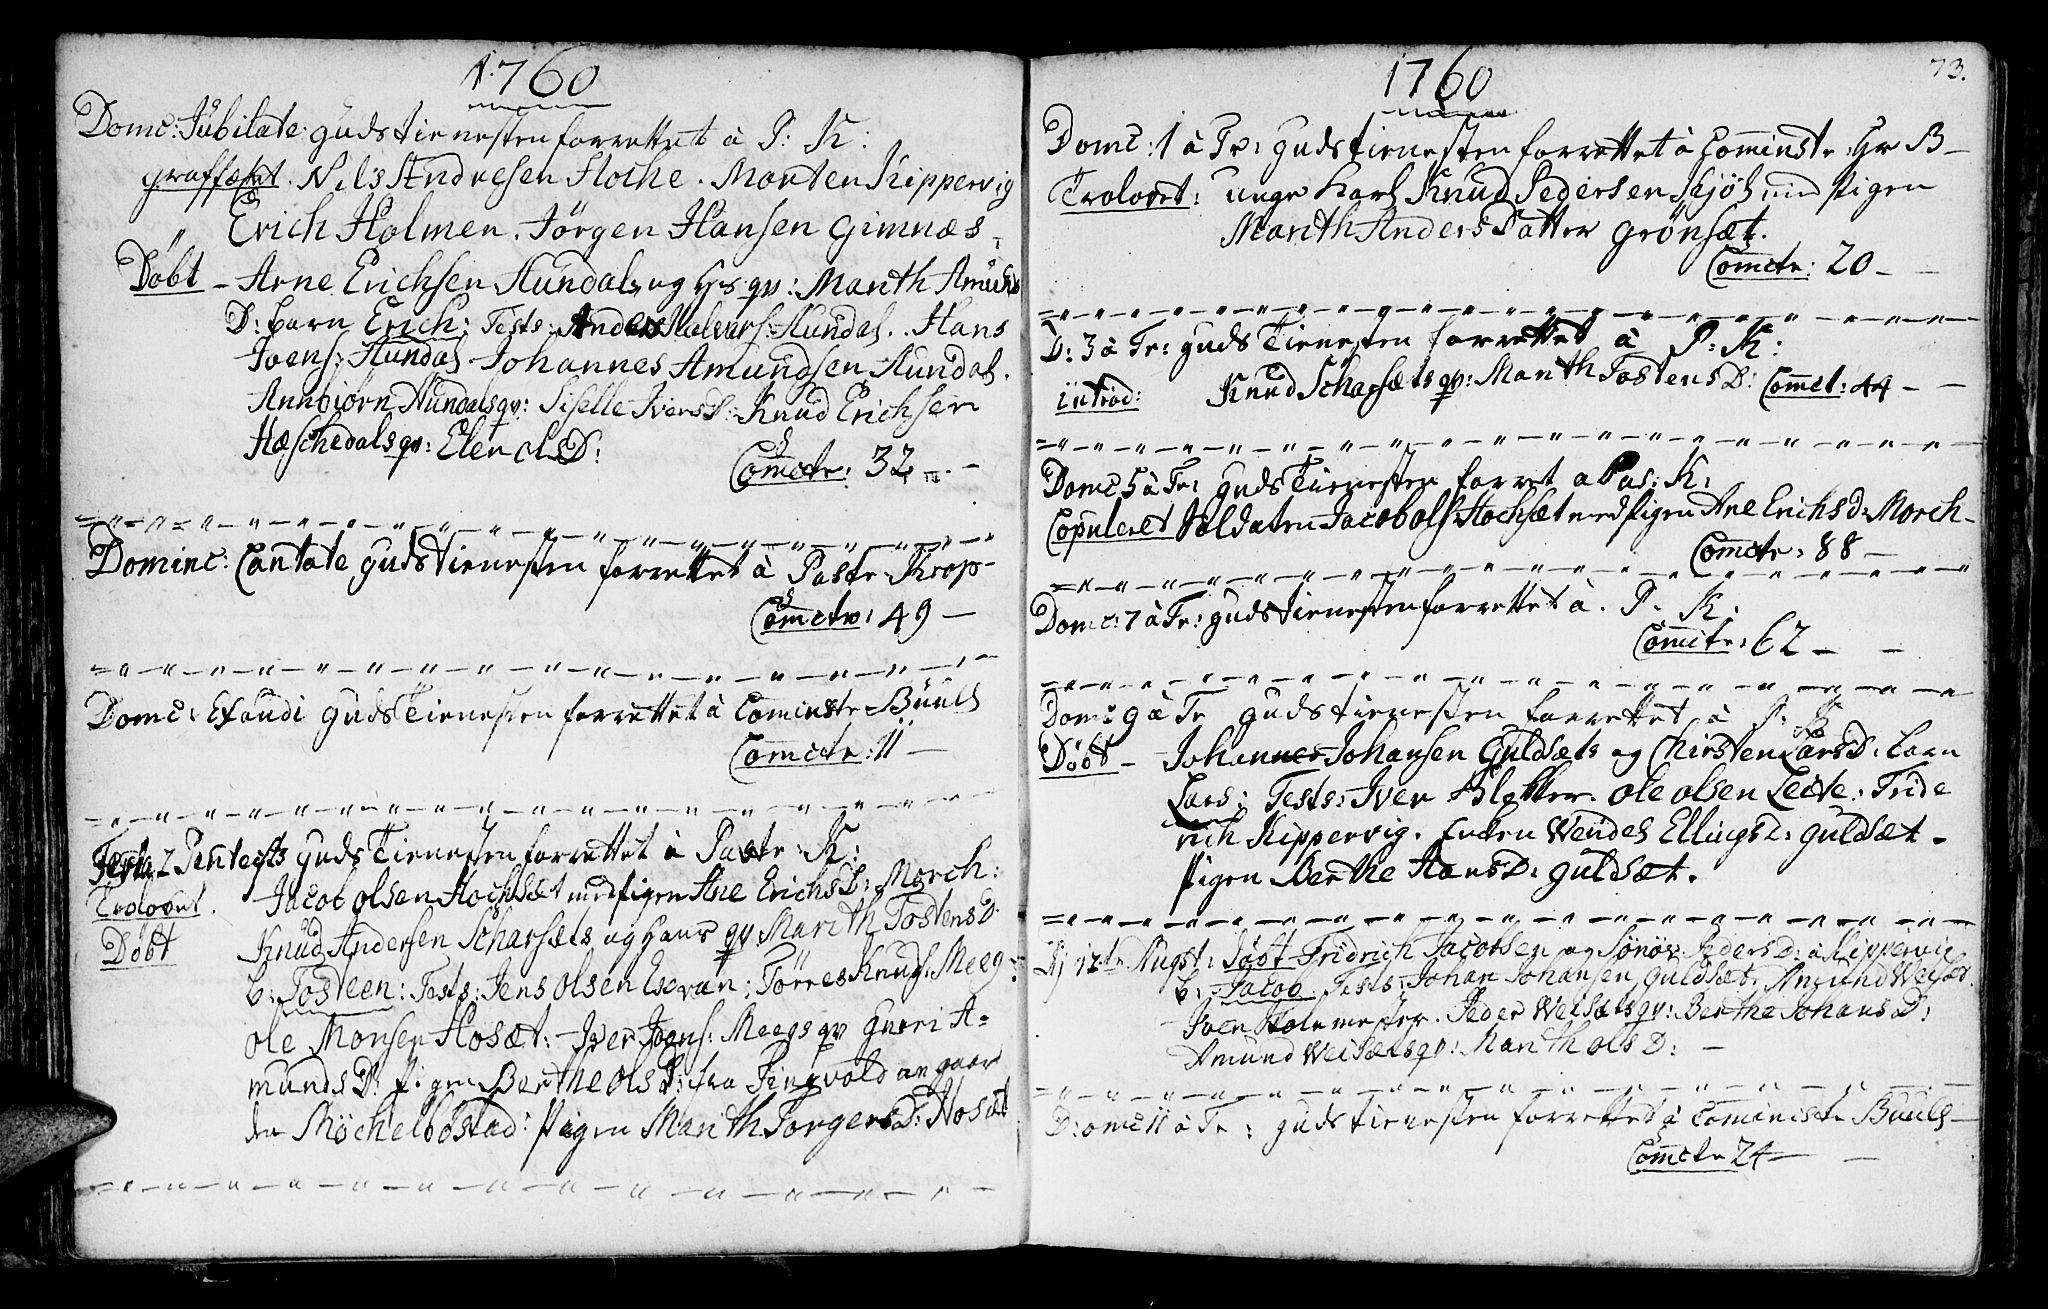 1760
Domc: Jubilate gudstienesten forrettet à P: K:
graffæstet. Nils Andresen Hoche. Morten Kippervig
Erich Holmen. Jörgen Hansen Gimnæs
Döbt – Arne Erichsen Aundals og hs qv: Marith Amunds
D: barn Erich: Tests: Anders Halvors: Aundal. Hans
Joens: Aundal Johannes Amundsen Aundal.
Annbiörn Aundals qv: Siselle IversD: Knud Erichsen
Hæschedals qv: Elen olsD:
Comctr: 32
Dominc: Cantate gudsTienesten forrettet à Paste Krop-
Comctr: 49 –
Domc: Exaudi gudsTienesten forrettet à Cominste Buuls
Comctr: 11 –
Festa 2 Pentects gudsTienesten forrettet à Paste: K:
Trolovet. Jacob olsen Hochsæt med Pigen Ane ErichsD: Morch:
Döbt Knud Andersen Scharsæts og hans qv Marith TostensD
b: Tosteen: Tests: Jens olsen Esevan: Törres Knuds: Meeg
ole Monsen Hosæt: Iver Joens: Meegs qv Guori A=
mundsD: pigen Berthe olsD: fra Tingvold an gaar
den Möchelbostad: Pigen Marith TorgersD: Hosæt
1760
73.
Domc: 1 à Tr: gudstienesten forrettet à Cominste: Hr B –
Trolovet: unge karl Knud Pedersen Schjöl med pigen
Marith AndersDatter Grönsæt.
Comctr: 20 –
D: 3 à Tr: gudsTienesten forrettet à P: K:
introd: Knud Scharsæts qv: Marith TostensD: Comct: 44 –
Domc 5 à Tr: gudsTienesten forret a Pas: K:
Copuleret Soldaten Jacob ols: Hochsæt med pigen Ane ErichsD: Morch –
Comctr: 88 –
Domc: 7 à Tr: gudstienesten forrettet à. P. K.
Comctr: 62 –
Domc 9 à Tr gudstienesten forrettet à P: K
Döbt – Johannes Johansen Guldsæts og Chirsten LarsD: barn
Lars: Tests: Iver Blekker. ole olsen Leite: Fride
rich Kippervig. Enken Wendel EllingsD: guldsæt –
Pigen Berthe HansD: guldsæt.
12te Augst: döbt Fridrich Jacobsen og Sönöv PedersD: à Kippervig
b: Jacob. Tests: Johan Johansen guldsæt. Amund Weisæt.
Iver Holemester. Peder Weisæts qv: Berthe JohansD:
Amund Weisæts qv: Marith olsD: –
D:omc 11 à Tr: gudstienesten forrettet à Coministe Buuls –
Comctr 24 –